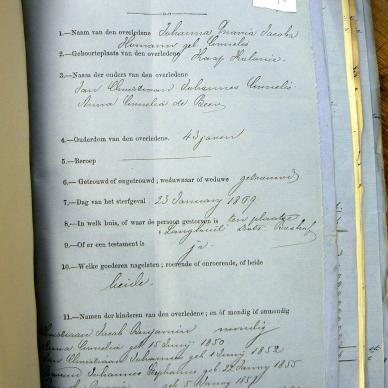 1.—Naam van den overledene Johanna Maria Jacoba
Homann geb Cornelis
2.—Geboorteplaats van den overledene Kaap Kolonie
3.—Naam der ouders van den overledene
Jan Christiaan Johannes Cornelis
Anna Cornelia de Beer
4.—Ouderdom van den overledene. 43 jaren
5.—Beroep
6.—Getrouwd of ongetrouwd; weduwnaar of weduwe getrouwd
7.—Dag van het sterfgeval 23 January 1869
8.—In welk huis, of waar de persoon gestorven is ten plaatse
9.—Of er een testament is ja
10.—Welke goederen nagelaten; roerende of onroerende, of beide
beide
11.—Namen der kinderen van den overledene; en of mondig of onmondig
Christiaan Jacob Benjamin mondig
Anna Cornelia geb 15 Junij 1850
Jan Christiaan Johannes geb 1 Junij 1852
Johannes Stephanus geb 22 January 1855